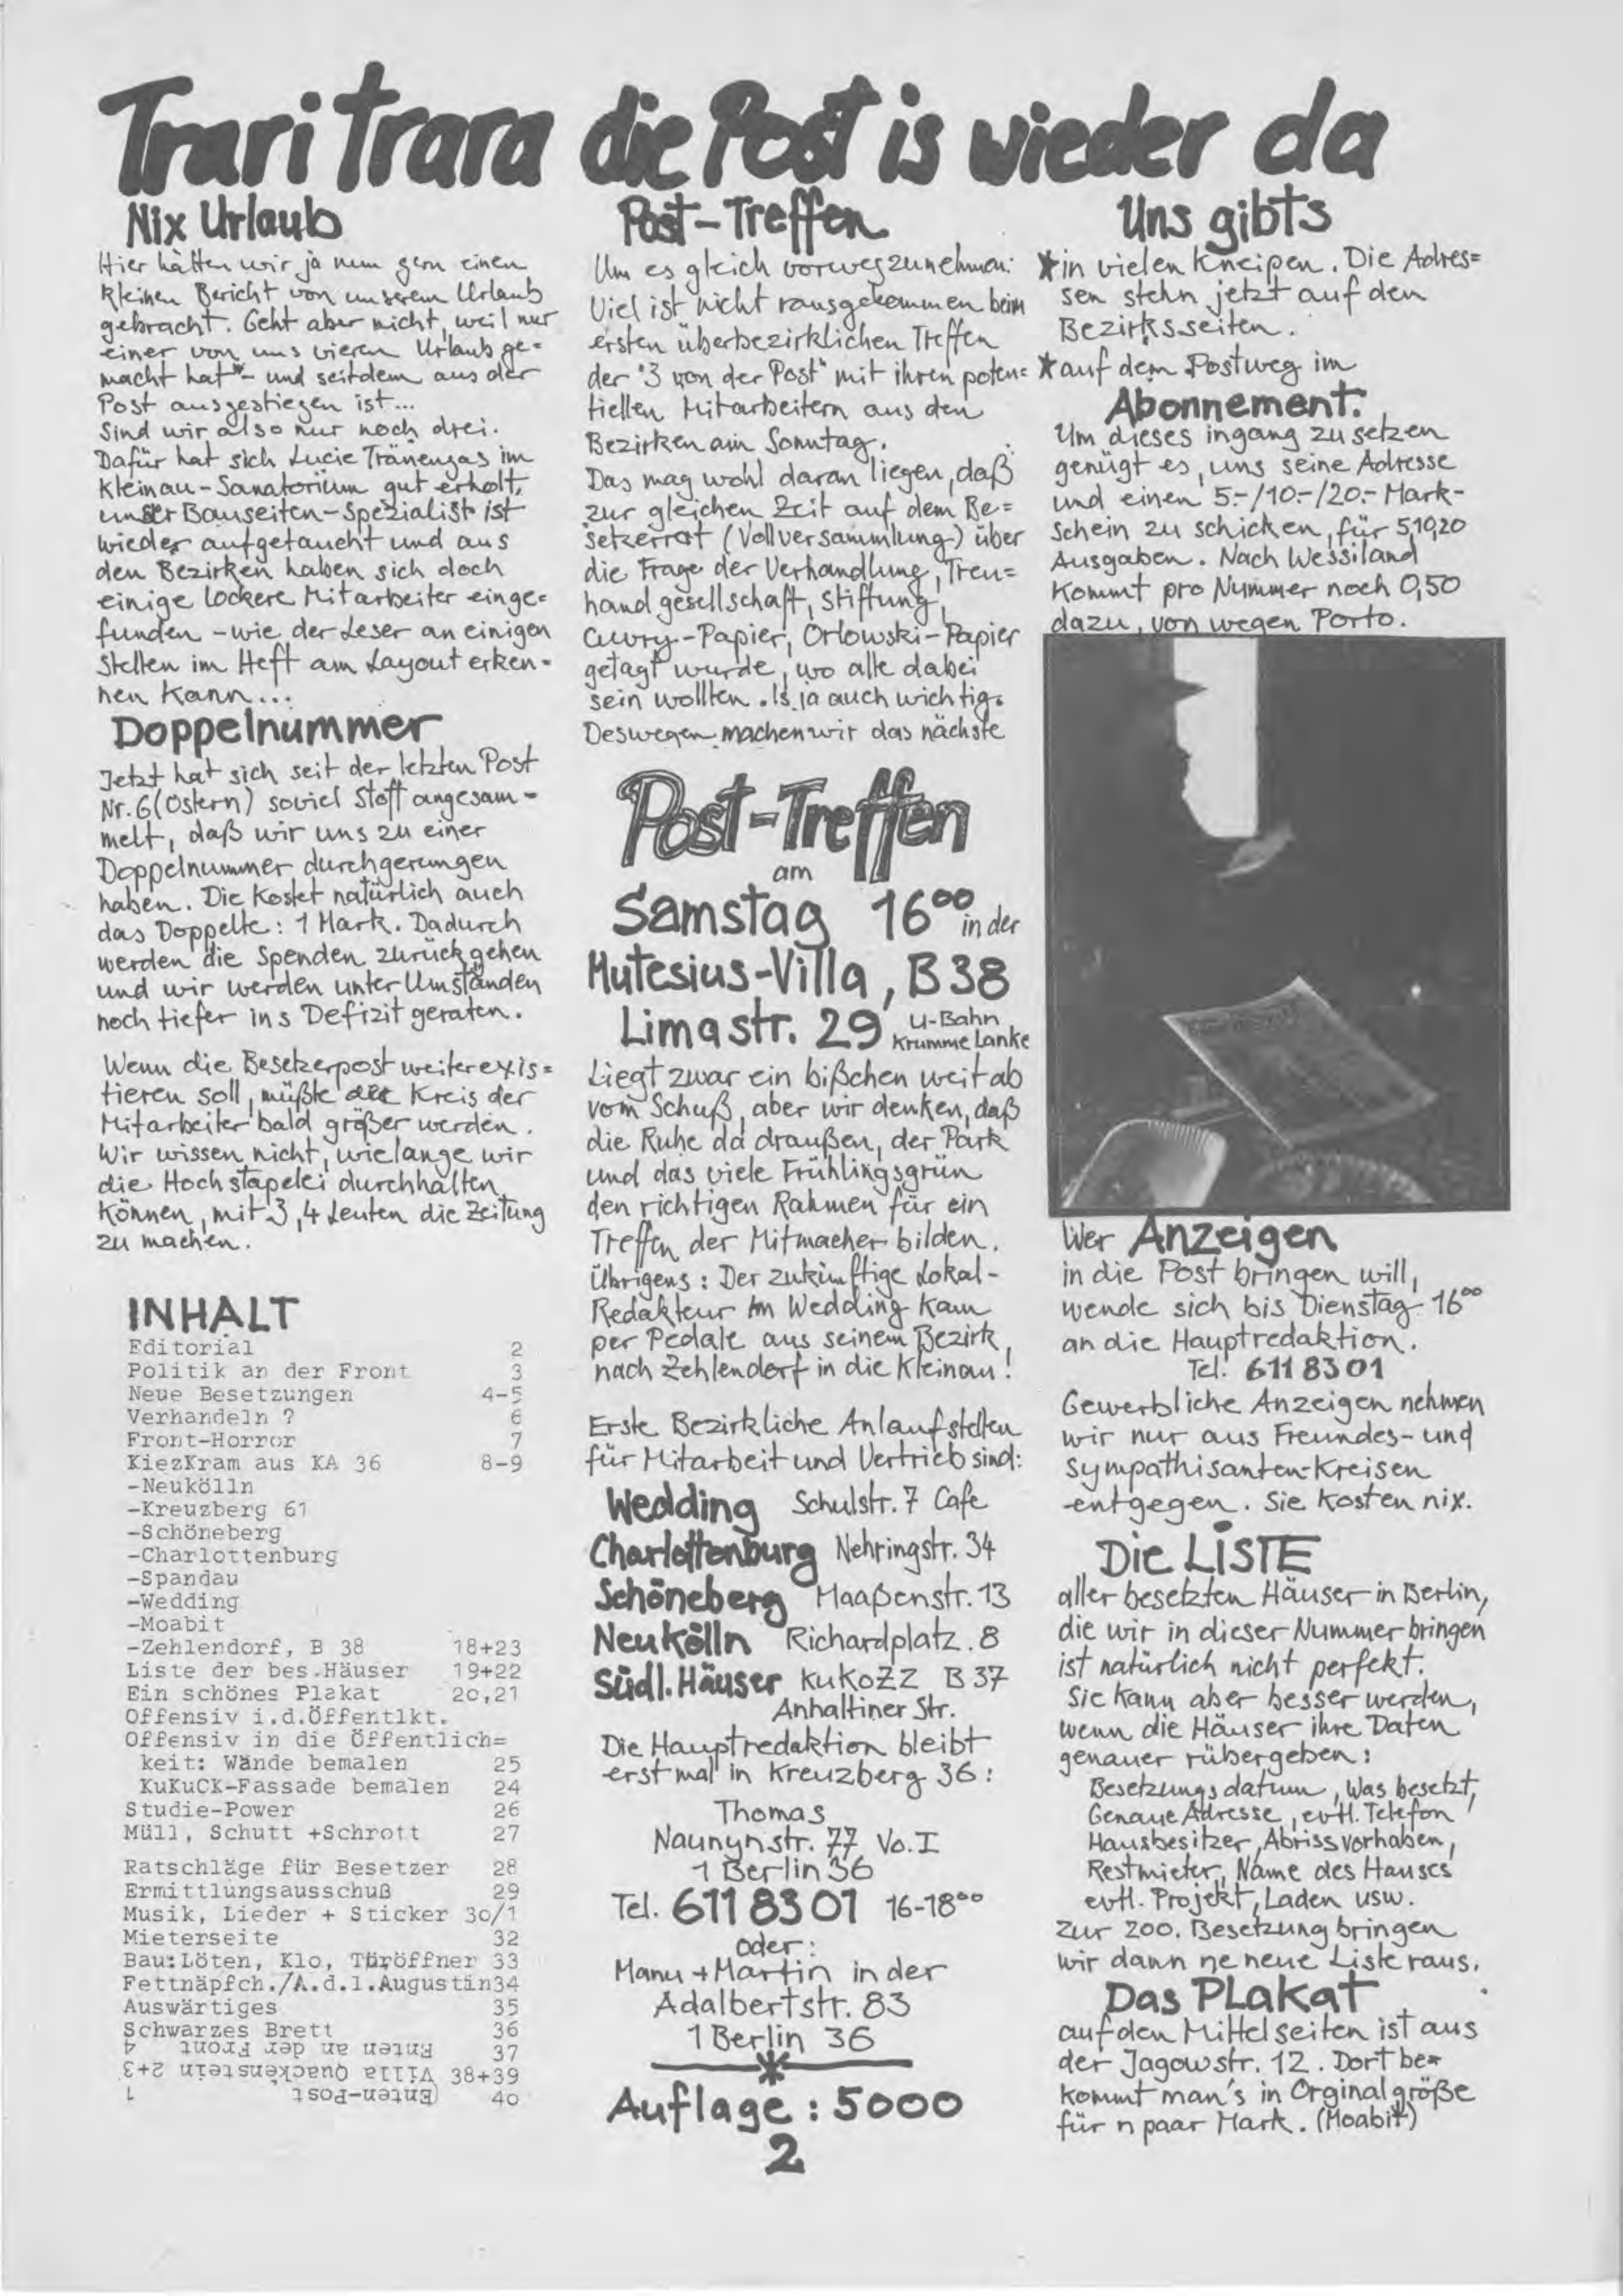 Trari trara die Post is wieder da
Nix Urlaub
Hier hätten wir ja nun gern einen
kleinen Bericht von unserem Urlaub
gebracht. Geht aber nicht, weil nur
einer von uns vieren Urlaub ge=
macht hat - und seitdem aus der
Post ausgestiegen ist...
Sind wir also nur noch drei.
Dafür hat sich Lucie Tränengas im
Kleinau-Sanatorium gut erholt,
unser Bauseiten-Spezialist ist
wieder aufgetaucht und aus
den Bezirken haben sich doch
einige lockere Mitarbeiter einge=
funden - wie der Leser an einigen
Stellen im Heft am Layout erken=
nen kann...
Doppelnummer
Jetzt hat sich seit der letzten Post
Nr. 6 (Ostern) soviel Stoff angesam-
melt, daß wir uns zu einer
Doppelnummer durchgerungen
haben. Die kostet natürlich auch
das Doppelte: 1 Mark. Dadurch
werden die Spenden zurückgehen
und wir werden unter Umständen
noch tiefer ins Defizit geraten.
Wenn die Besetzerpost weiterexis=
tieren soll, müßte der Kreis der
Mitarbeiter bald größer werden.
Wir wissen nicht, wielange wir
die Hochstapelei durchhalten
können, mit 3, 4 Leuten die Zeitung
zu machen.
INHALT
Editorial 2
Politik an der Front 3
Neue Besetzungen 4-5
Verhandeln ? 6
Front-Horror 7
KiezKram aus KA 36 8-9
-Neukölln
-Kreuzberg 61
-Schöneberg
-Charlottenburg
-Spandau
-Wedding
-Moabit
-Zehlendorf, B 38 18+23
Liste der bes.Häuser 19+22
Ein schönes Plakat 2o,21
Offensiv i.d.Öffentlkt.
Offensiv in die Öffentlich=
keit: Wände bemalen 25
KuKuCK-Fassade bemalen 24
Studie-Power 26
Müll, Schutt +Schrott 27
Ratschläge für Besetzer 28
Ermittlungsausschuß 29
Musik, Lieder + Sticker 3o/1
Mieterseite 32
Bau:Löten, Klo, Türöffner 33
Fettnäpfch./A.d.l.Augustin34
Auswärtiges 35
Schwarzes Brett 36
Enten an der Front 4 37
Villa Quackenstein 2+3 38+39
(Enten-Post 1 4o
Post-Treffen
Um es gleich vorwegzunehmen:
Viel ist nicht rausgekommen beim
ersten überbezirklichen Treffen
der "3 von der Post" mit ihren poten=
tiellen Mitarbeitern aus den
Bezirken am Sonntag.
Das mag wohl daran liegen, daß
zur gleichen Zeit auf dem Be=
setzerrat (Vollversammlung) über
die Frage der Verhandlung, Treu=
handgesellschaft, Stiftung,
Cuvry-Papier, Orlowski-Papier
getagt wurde, wo alle dabei
sein wollten. Is ja auch wichtig.
Deswegen machen wir das nächste
Post-Treffen
am
Samstag 16⁰⁰ in der
Mutesius-Villa, B38
Limastr. 29 U-Bahn
Krumme Lanke
Liegt zwar ein bißchen weitab
vom Schuß, aber wir denken, daß
die Ruhe da draußen, der Park
und das viele Frühlingsgrün
den richtigen Rahmen für ein
Treffen der Mitmacher bilden.
Übrigens: Der zukünftige Lokal-
Redakteur im Wedding kam
per Pedale aus seinem Bezirk
nach Zehlendorf in die Kleinau!
Erste Bezirkliche Anlaufstellen
für Mitarbeit und Vertrieb sind:
Wedding Schulstr. 7 Cafe
Charlottenburg Nehringstr. 34
Schöneberg Maaßenstr. 13
Neukölln Richardplatz. 8
Südl. Häuser KuKoZZ B 37
Anhaltiner Str.
Die Hauptredaktion bleibt
erstmal in Kreuzberg 36:
Thomas
Naunynstr. 77 Vo. I
1 Berlin 36
Tel. 611 83 01 16-18⁰⁰
oder:
Manu + Martin in der
Adalbertstr. 83
1 Berlin 36
Auflage: 5000
2
Uns gibts
* in vielen Kneipen. Die Adres=
sen stehn jetzt auf den
Bezirksseiten.
* auf dem Postweg im
Abonnement.
Um dieses ingang zu setzen
genügt es, uns seine Adresse
und einen 5.-/10.-/20.- Mark-
schein zu schicken, für 5,10,20
Ausgaben. Nach Wessiland
kommt pro Nummer noch 0,50
dazu, von wegen Porto.
Wer Anzeigen
in die Post bringen will,
wende sich bis Dienstag 16⁰⁰
an die Hauptredaktion.
Tel. 611 83 01
Gewerbliche Anzeigen nehmen
wir nur aus Freundes- und
Sympathisanten-Kreisen
entgegen. Sie kosten nix.
Die LISTE
aller besetzten Häuser in Berlin,
die wir in dieser Nummer bringen
ist natürlich nicht perfekt.
Sie kann aber besser werden,
wenn die Häuser ihre Daten
genauer rübergeben:
Besetzungsdatum, Was besetzt,
Genaue Adresse, evtl. Telefon,
Hausbesitzer, Abrissvorhaben,
Restmieter, Name des Hauses
evtl. Projekt, Laden usw.
Zur 200. Besetzung bringen
wir dann ne neue Liste raus.
Das Plakat
auf den Mittelseiten ist aus
der Jagowstr. 12. Dort be=
kommt man's in Orginalgröße
für n paar Mark. (Moabit)